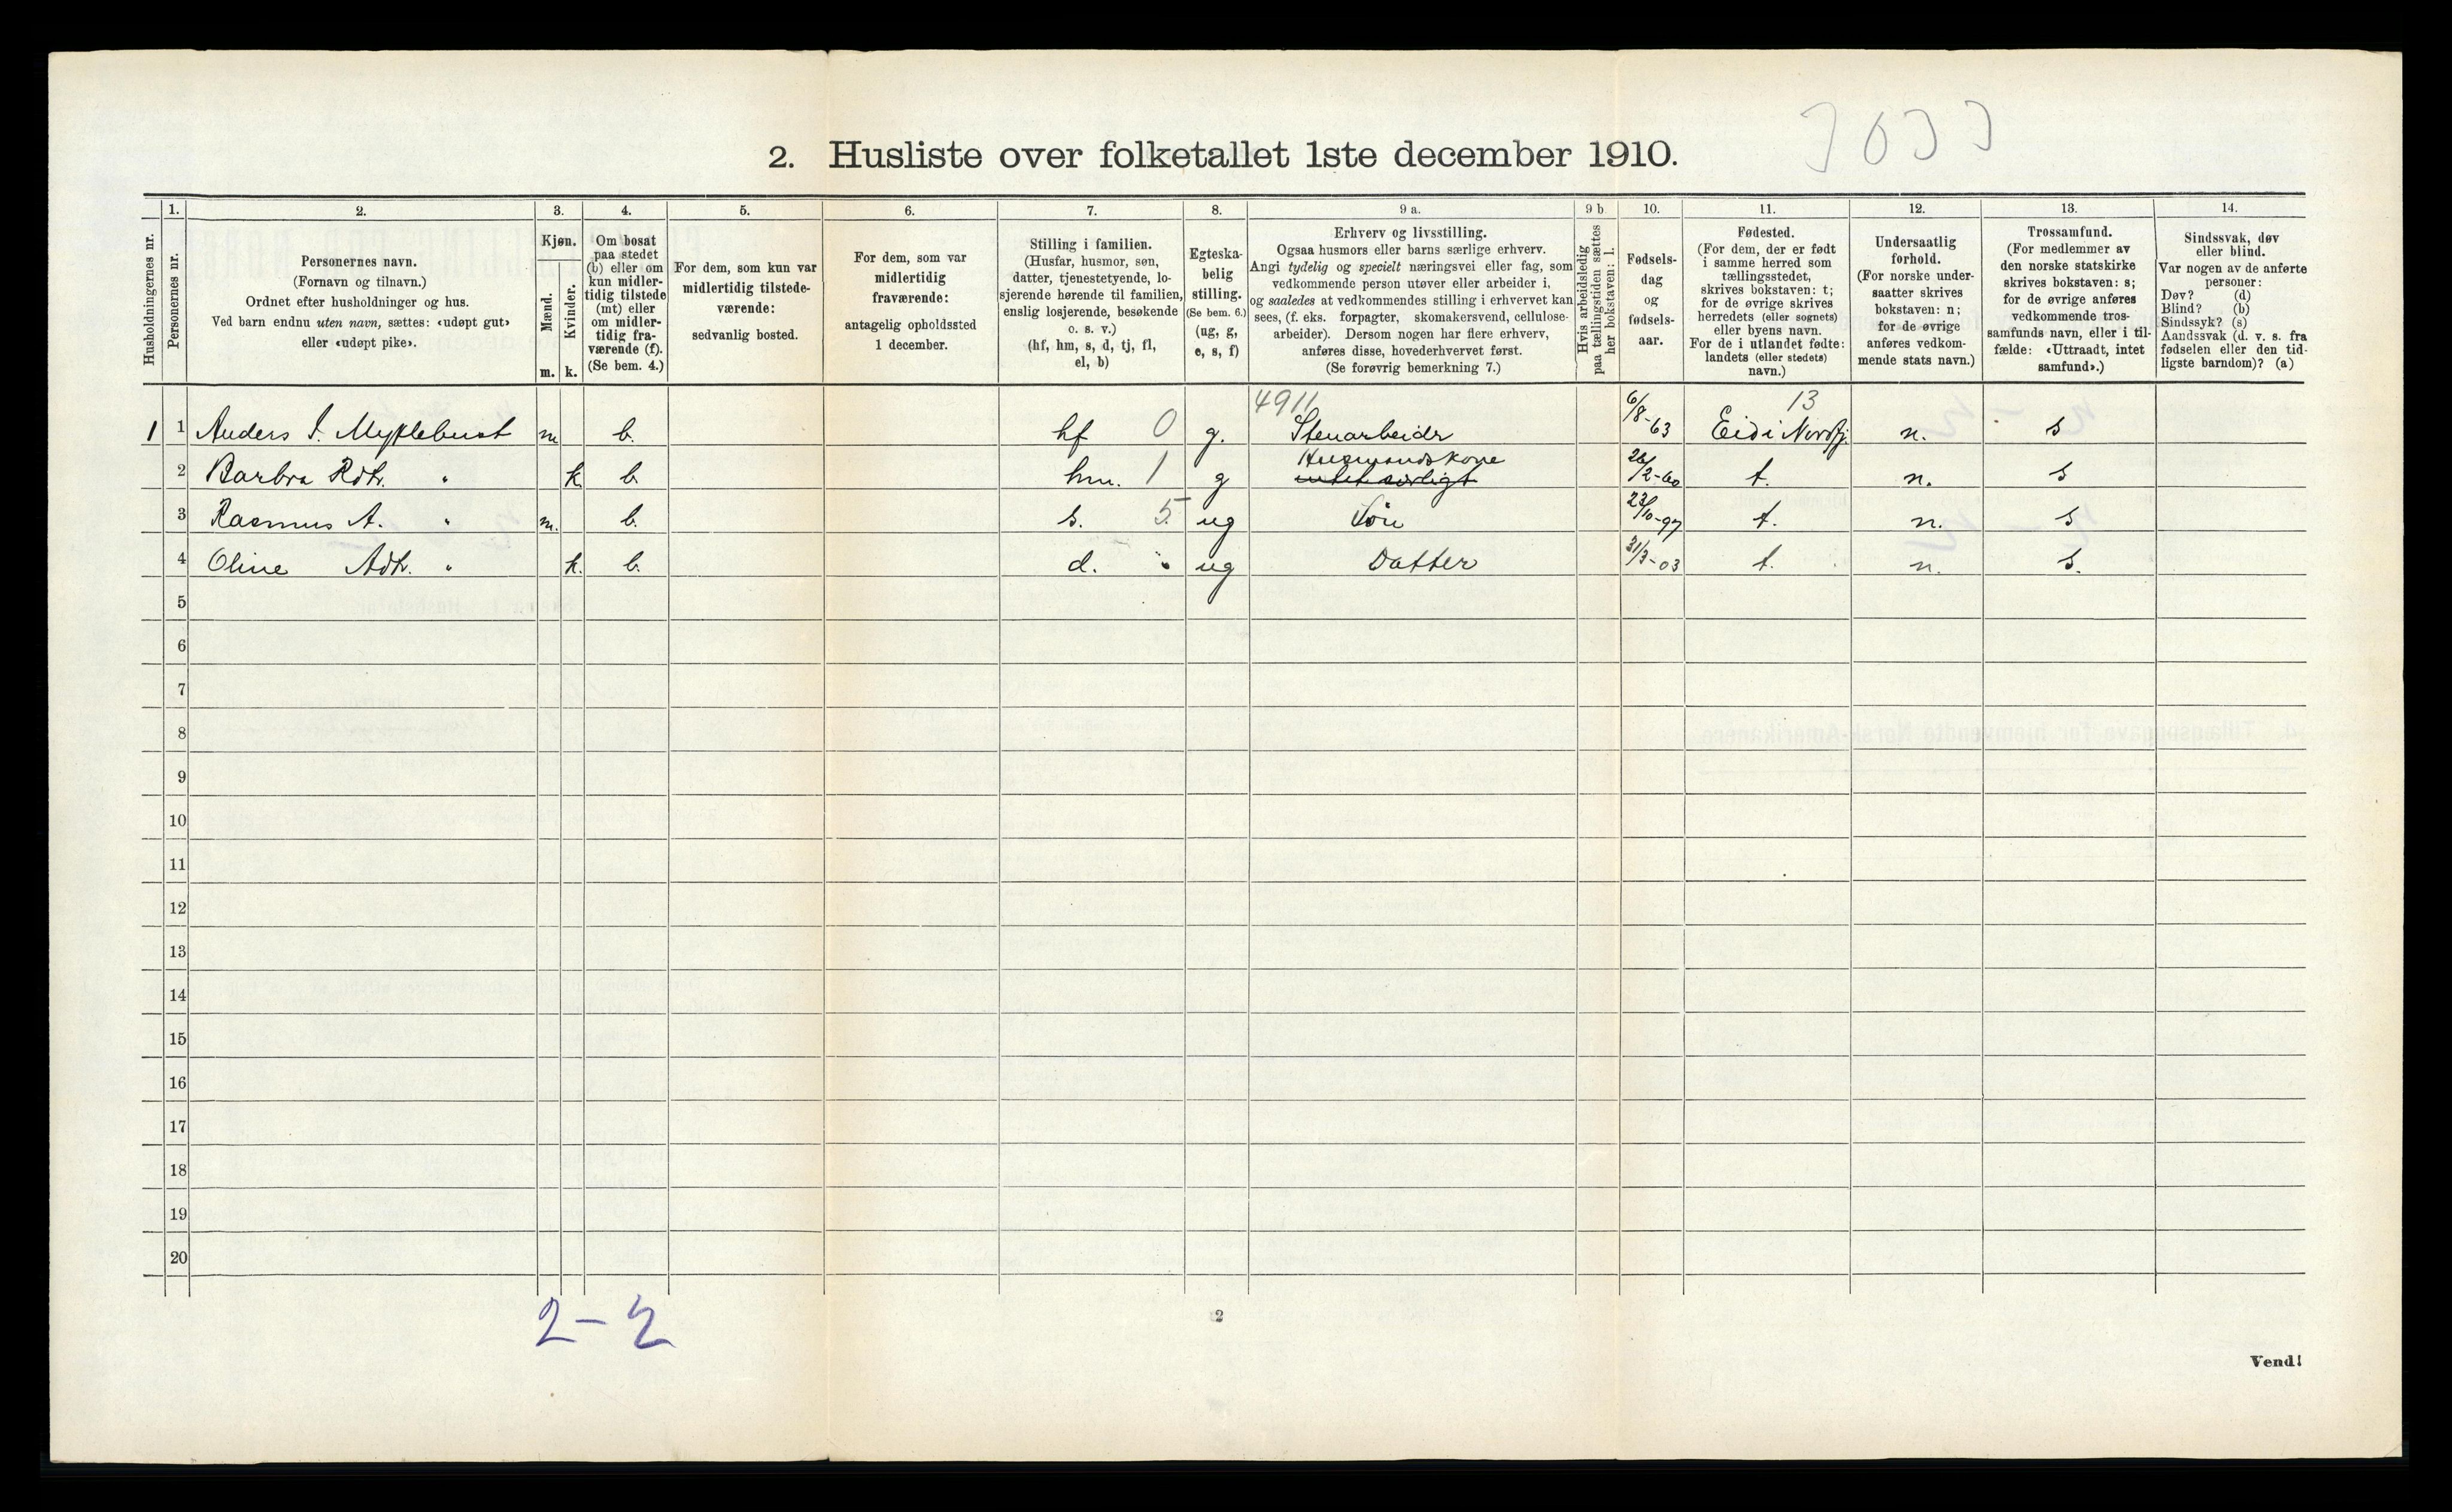 2. Husliste over folketallet 1ste december 1910.
Husholdningernes nr.
1.
Personernes nr.
2.
Personernes navn.
(Fornavn og tilnavn.)
Ordnet efter husholdninger og hus.
Ved barn endnu uten navn, sættes: «udøpt gut»
eller «udøpt pike».
3.
Kjøn.
Mænd.
Kvinder.
m. k.
4.
Om bosat
paa stedet
(b) eller om
kun midler-
tidig tilstede
(mt) eller
om midler-
tidig fra-
værende (f).
(Se bem. 4.)
5.
For dem, som kun var
midlertidig tilstede-
værende:
sedvanlig bosted.
6.
For dem, som var
midlertidig
fraværende:
antagelig opholdssted
1 december.
7.
Stilling i familien.
(Husfar, husmor, søn,
datter, tjenestetyende, lo-
sjerende hørende til familien,
enslig losjerende, besøkende
o. s. v.)
(hf, hm, s, d, tj, fl,
el, b)
8.
Egteska-
belig
stilling.
(Se bem. 6.)
(ug, g,
e, s, f)
9 a.
Erhverv og livsstilling.
Ogsaa husmors eller barns særlige erhverv.
Angi tydelig og specielt næringsvei eller fag, som
vedkommende person utøver eller arbeider i,
og saaledes at vedkommendes stilling i erhvervet kan
sees, (f. eks. forpagter, skomakersvend, cellulose-
arbeider). Dersom nogen har flere erhverv,
anføres disse, hovederhvervet først.
(Se forøvrig bemerkning 7.)
9 b
Hvis arbeidsledig
paa tællingstiden sættes
her bokstaven: l.
10.
Fødsels-
dag
og
fødsels-
aar.
11.
Fødested.
(For dem, der er født
i samme herred som
tællingsstedet,
skrives bokstaven: t;
for de øvrige skrives
herredets (eller sognets)
eller byens navn.
For de i utlandet fødte:
landets (eller stedets)
navn.)
12.
Undersaatlig
forhold.
(For norske under-
saatter skrives
bokstaven: n;
for de øvrige
anføres vedkom-
mende stats navn.)
13.
Trossamfund.
(For medlemmer av
den norske statskirke
skrives bokstaven: s;
for de øvrige anføres
vedkommende tros-
samfunds navn, eller i til-
fælde: «Uttraadt, intet
samfund».)
14.
Sindssvak, døv
eller blind.
Var nogen av de anførte
personer:
Døv? (d)
Blind? (b)
Sindssyk? (s)
Aandssvak (d. v. s. fra
fødselen eller den tid-
ligste barndom)? (a)
4911 13
1 1 Anders I. Myklebust m b. hf 0 g. Stenarbeidr 6/8-63 Eid i Nordfj. n. s
Husmandskone
2 Barbra Rdtr. " k b. hm. 1 g intet særligt 26/2-60 t. n. s
3 Rasmus A. " m. b. s. 5 ug Søn 23/10-97 t. n. s
4 Oline Adtr. " k. b. d. " ug Datter 31/3-03 t. n. s.
5
6
7
8
9
10
11
12
13
14
15
16
17
18
19
20
2-2
2
Vend!